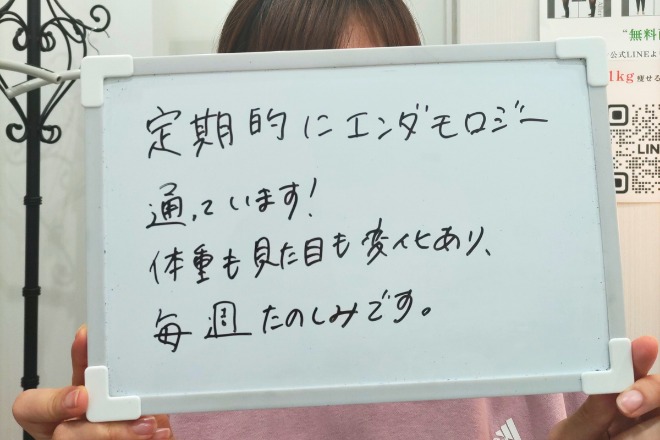 定期的にエンダモロジー
通っています!
体重も見た目も変化あり、
毎週たのしみです。
"無料
公式LINEよ
1kg 痩せる
LIN